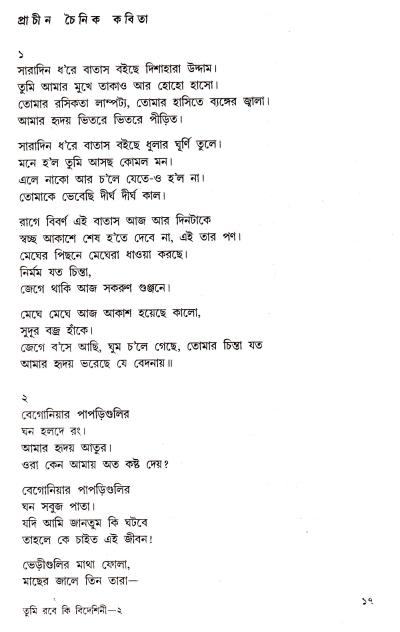 প্রাচীন চৈনিক কবিতা
১
সারাদিন ধ'রে বাতাস বইছে দিশাহারা উদ্দাম।
তুমি আমার মুখে তাকাও আর হোহো হাসো।
তোমার রসিকতা লাম্পট্য, তোমার হাসিতে ব্যঙ্গের জ্বালা।
আমার হৃদয় ভিতরে ভিতরে পীড়িত।
সারাদিন ধ'রে বাতাস বইছে ধুলার ঘূর্ণি তুলে।
মনে হ'ল তুমি আসছ কোমল মন।
এলে নাকো আর চ'লে যেতে-ও হ'ল না।
তোমাকে ভেবেছি দীর্ঘ দীর্ঘ কাল।
রাগে বিবর্ণ এই বাতাস আজ আর দিনটাকে
স্বচ্ছ আকাশে শেষ হ'তে দেবে না, এই তার পণ।
মেঘের পিছনে মেঘেরা ধাওয়া করছে।
নির্মম যত চিন্তা,
জেগে থাকি আজ সকরুণ গুঞ্জনে।
মেঘে মেঘে আজ আকাশ হয়েছে কালো,
সুদূর বজ্র হাঁকে।
জেগে ব'সে আছি, ঘুম চ'লে গেছে, তোমার চিন্তা যত
আমার হৃদয় ভরেছে যে বেদনায়॥
২
বেগোনিয়ার পাপড়িগুলির
ঘন হলদে রং।
আমার হৃদয় আতুর।
ওরা কেন আমায় অত কষ্ট দেয়?
বেগোনিয়ার পাপড়িগুলির
ঘন সবুজ পাতা।
যদি আমি জানতুম কি ঘটবে
তাহলে কে চাইত এই জীবন!
ভেড়ীগুলির মাথা ফোলা,
মাছের জালে তিন তারা—
তুমি রবে কি বিদেশিনী—২
১৭